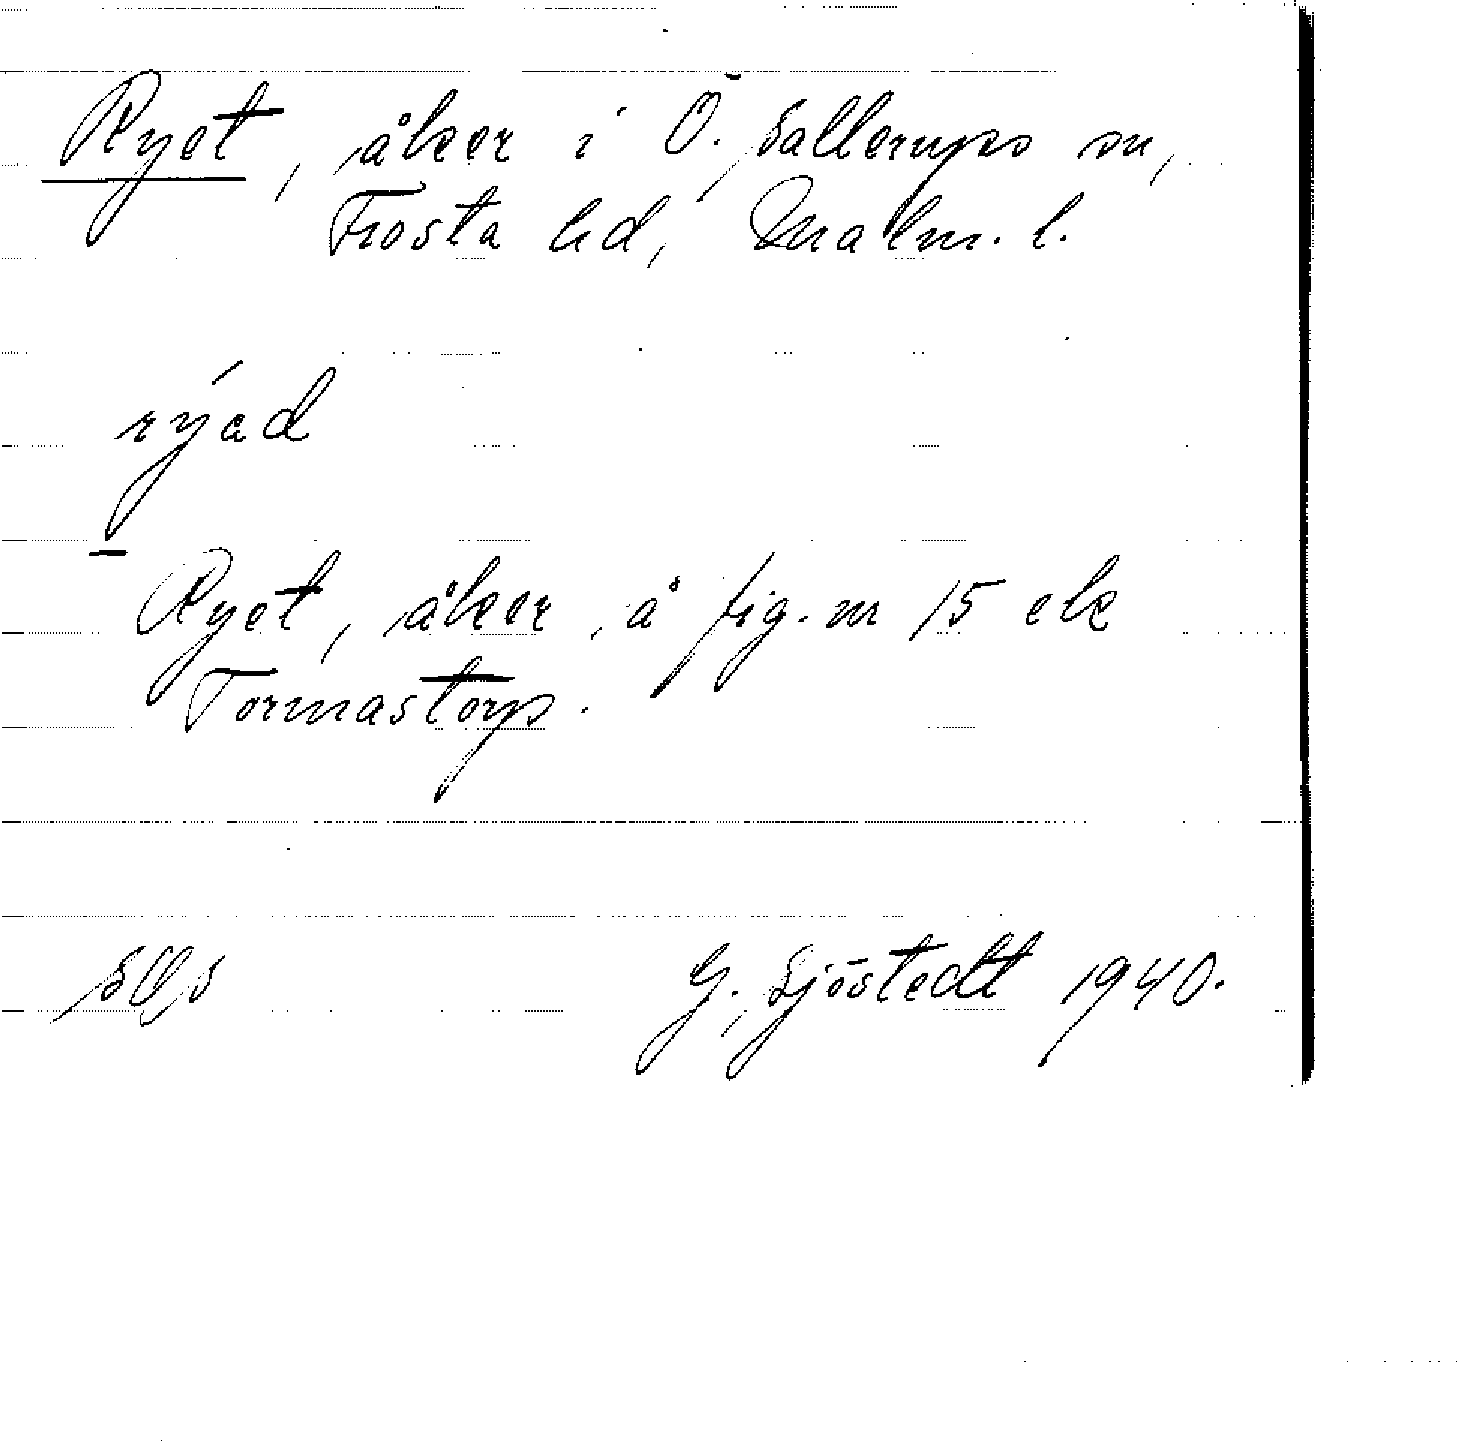 Ryet, åker i Ö. Sallerups sn,
Frosta hd, Malm. l.
rýad
Ryet, åker, å fig. nr 15 ek
Tormastorp.
G. Sjöstedt 1940.